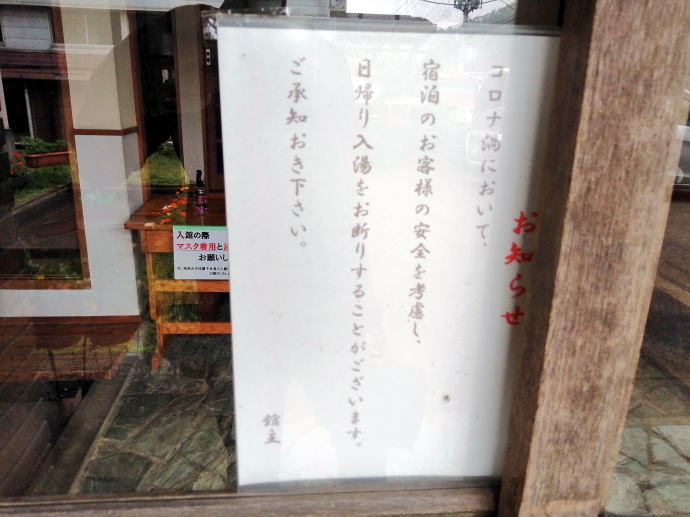 お知らせ
コロナ渦において、
宿泊のお客様の安全を考慮し、
日帰り入湯をお断りすることがございます。
ご承知おき下さい。
館主
入館の際
マスク着用と
お願いし